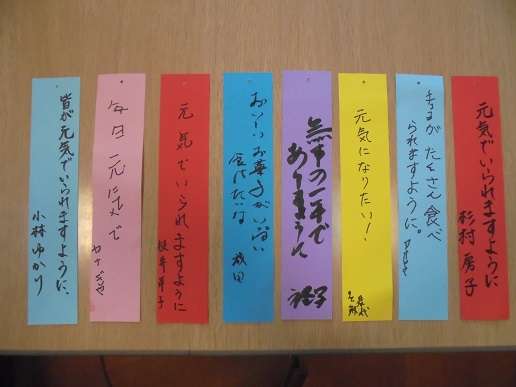 元気でいられますように
杉村房子
たくさん食べ
られますように。
元気になりたい!
無事の一年で
ありますように
おいしいお菓子がいっぱい
食べたいな
成田
元気でいられますように
毎日元気で
皆が元気でいられますように、
小林ゆかり